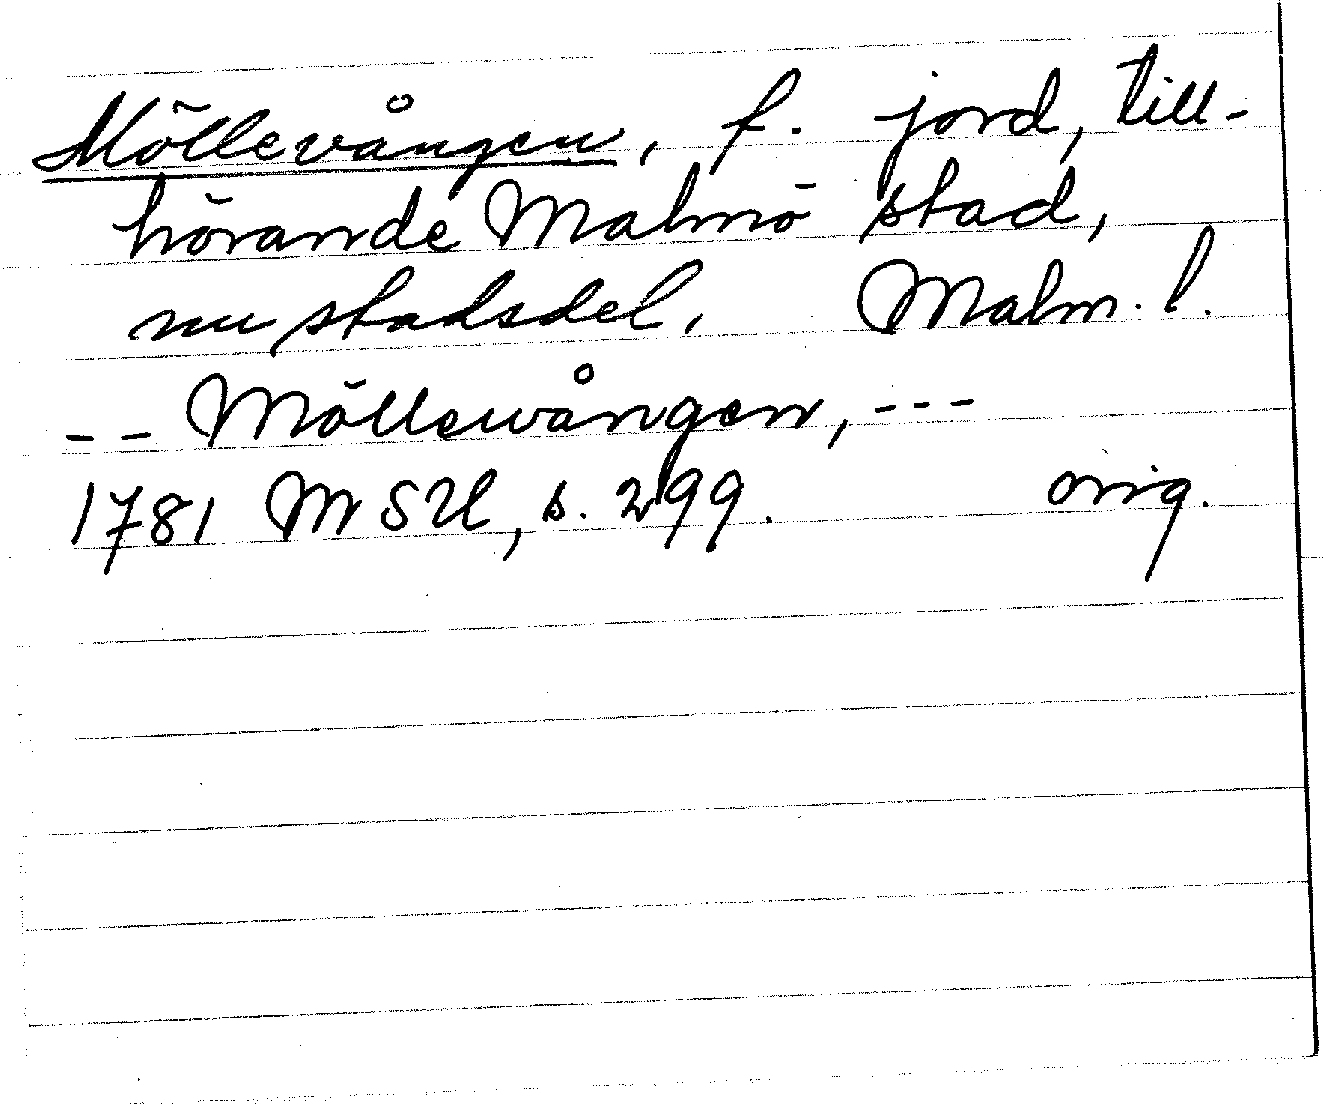 Möllevången, f. jord, till-
hörande Malmö stad,
nu stadsdel. Malm. l.
-- Möllewången, ---
1781 MSU, s. 299. orig.